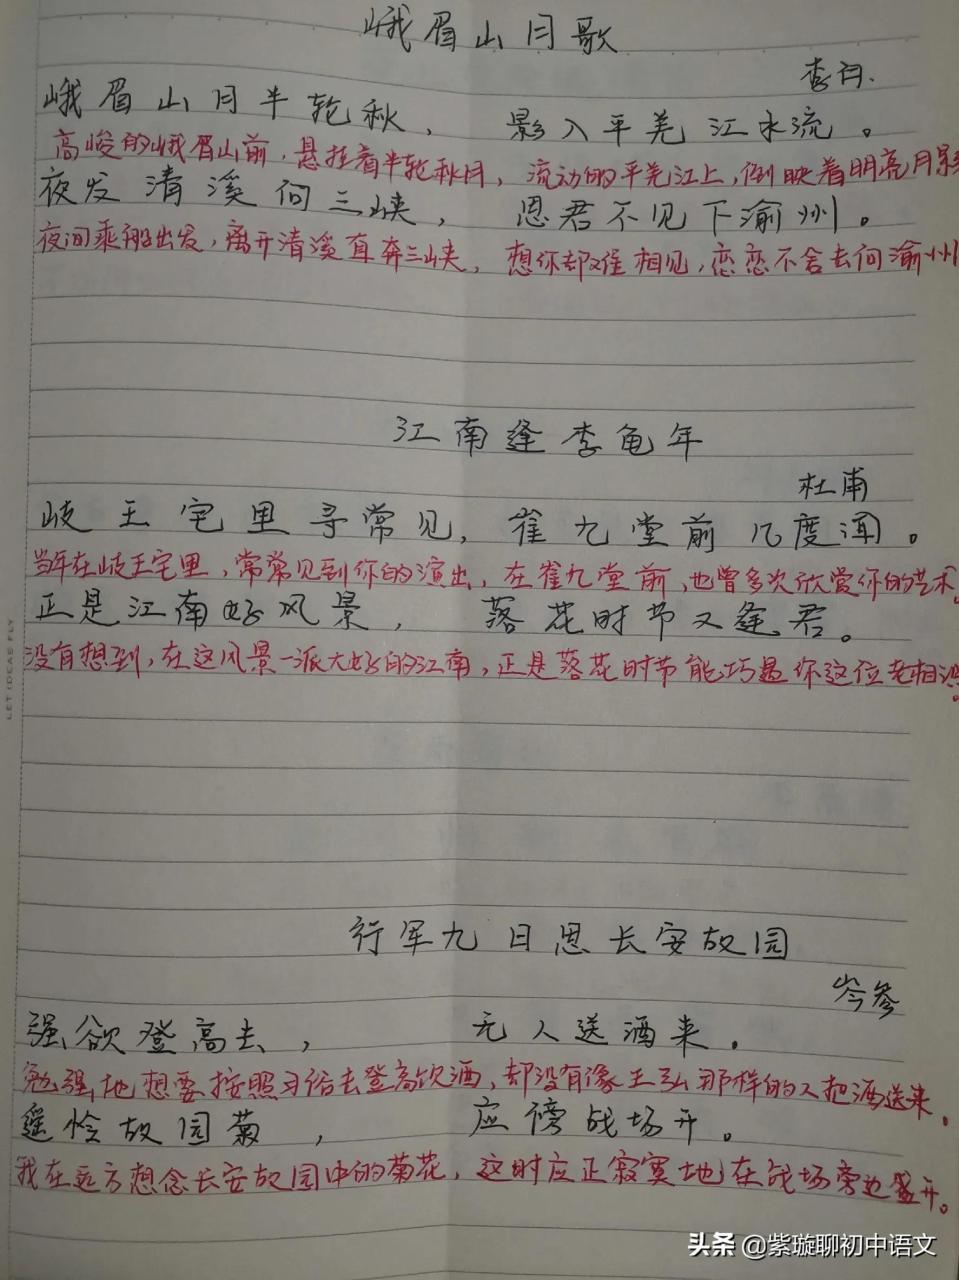 峨眉山月歌
李白.
峨眉山月半轮秋, 影入平羌江水流。
高峻的峨眉山前,悬挂着半轮秋月,流动的平羌江上,倒映着明亮月影
夜发清溪向三峡, 思君不见下渝州。
夜间乘船出发,离开清溪直奔三峡,想你却难相见,恋恋不舍去向渝州
江南逢李龟年
杜甫
岐王宅里寻常见,崔九堂前几度闻。
当年在岐王宅里,常常见到你的演出,在崔九堂前,也曾多次欣赏你的艺术。
正是江南好风景, 落花时节又逢君。
没有想到,在这风景一派大好的江南,正是落花时节能巧遇你这位老相识。
行军九日思长安故园
岑参
强欲登高去, 无人送酒来.
勉强地想要按照习俗去登高饮酒,却没有像王弘那样的人把酒送来.
遥怜故园菊, 应傍战场开。
我在远方想念长安故园中的菊花,这时应正寂寞地在战场旁边盛开。
LET IDEAS FLY
头条 @紫璇聊初中语文